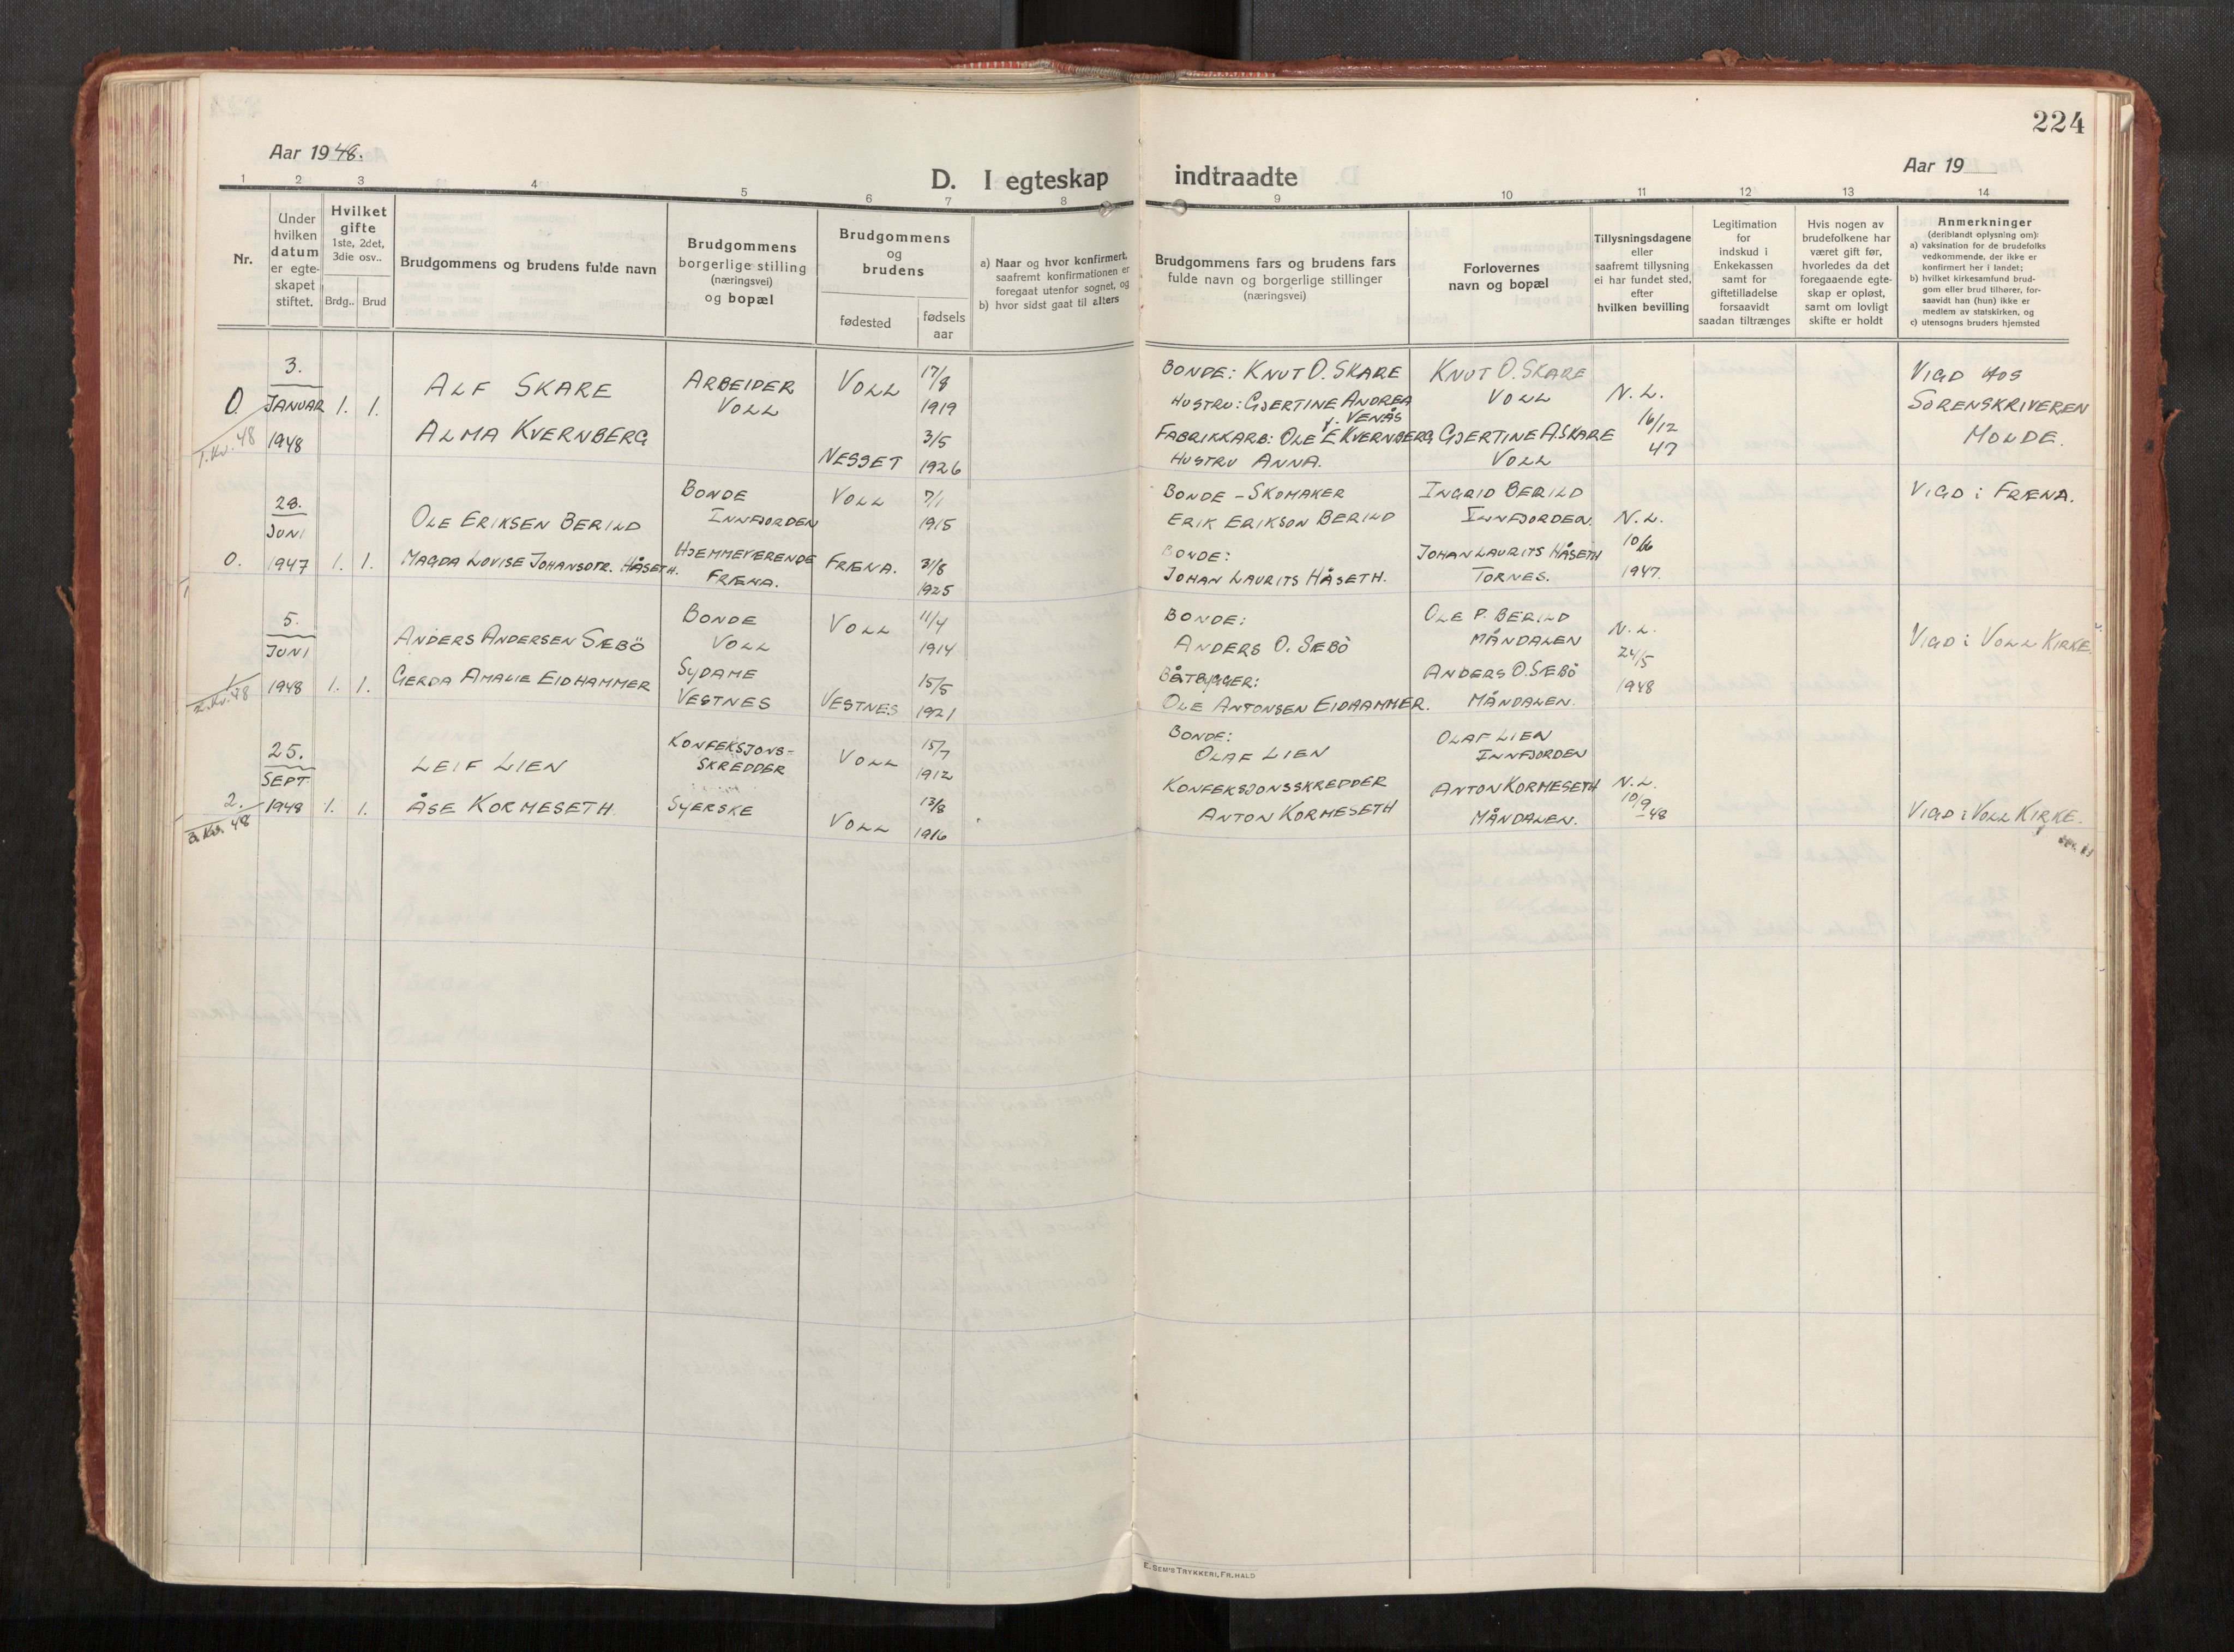 224
Aar 1948.
Aar 19
D. I egteskap indtraadte
1 2 3 4 5 6 7 8 9 10 11 12 13 14
Nr.
Under
hvilken
datum
er egte-
skapet
stiftet.
Hvilket
gifte
1ste, 2det,
3die osv..
Brdg.. Brud
Brudgommens og brudens fulde navn
Brudgommens
borgerlige stilling
(næringsvei)
og bopæl
Brudgommens
og
brudens
fødested
fødsels
aar
a) Naar og hvor konfirmert,
saafremt konfirmationen er
foregaat utenfor sognet, og
b) hvor sidst gaat til alters
Brudgommens fars og brudens fars
fulde navn og borgerlige stillinger
(næringsvei)
Forlovernes
navn og bopæl
Tillysningsdagene
eller
saafremt tillysning
ei har fundet sted,
efter
hvilken bevilling
Legitimation
for
indskud i
Enkekassen
samt for
giftetilladelse
forsaavidt
saadan tiltrænges
Hvis nogen av
brudefolkene har
været gift før,
hvorledes da det
foregaaende egte-
skap er opløst,
samt om lovligt
skifte er holdt
Anmerkninger
(deriblandt oplysning om):
a) vaksination for de brudefolks
vedkommende, der ikke er
konfirmert her i landet;
b) hvilket kirkesamfund brud-
gom eller brud tilhører, for-
saavidt han (hun) ikke er
medlem av statskirken, og
c) utensogns bruders hjemsted
0.
1. Kv. 48
3.
JANUAR
1948
1. 1.
ALF SKARE
ALMA KVERNBERG
ARBEIDER
VOLL
VOLL
NESSET
17/8
1919
3/5
1926
BONDE: KNUT O. SKARE
HUSTRU: GJERTINE ANDREA
f. VENÅS
FABRIKKARB: OLE E KVERNBERG
HUSTRU ANNA.
KNUT O. SKARE
VOLL
GJERTINE A. SKARE
VOLL
N. L.
16/12
47
VIGD HOS
SORENSKRIVEREN
MOLDE.
0.
28.
JUNI
1947
1. 1.
OLE ERIKSEN BERILD
MAGDA LOVISE JOHANSDTR. HÅSETH.
BONDE
INNFJORDEN
HJEMMEVERENDE
FRÆNA.
VOLL
FRÆNA.
7/1
1915
31/8
1925
BONDE - SKOMAKER
ERIK ERIKSON BERILD
BONDE:
JOHAN LAURITS HÅSETH.
INGRID BERILD
INNFJORDEN.
JOHAN LAURITS HÅSETH
TORNES.
N. L.
10/6
1947.
VIGD i FRÆNA.
1
2. Kv. 48
5.
JUNI
1948
1. 1.
ANDERS ANDERSEN SÆBÖ
GERDA AMALIE EIDHAMMER
BONDE
VOLL
SYDAME
VESTNES
VOLL
VESTNES
11/4
1914
15/5
1921
BONDE:
ANDERS O. SÆBÖ
BÅTBYGGER:
OLE ANTONSEN EIDHAMMER.
OLE P. BERILD
MÅNDALEN
ANDERS O. SÆBÖ
MÅNDALEN.
N. L.
24/5
1948
VIGD i VOLL KIRKE.
2.
3. Kv. 48
25.
SEPT
1948
1. 1.
LEIF LIEN
ÅSE KORMESETH
KONFEKSJONS-
SKREDDER
SYERSKE
VOLL
VOLL
15/7
1912
13/8
1916
BONDE:
OLAF LIEN
KONFEKSJONSSKREDDER
ANTON KORMESETH
OLAF LIEN
INNFJORDEN
ANTON KORMESETH
MÅNDALEN.
N. L.
10/9
48
VIGD i VOLL KIRKE.
E. SEM'S TRYKKERI, FR. HALD